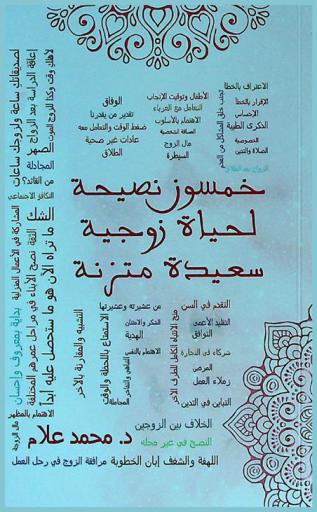 لأهلك وقت وكذا للزوج الموت
لصديقاتك ساعة ولزوجك ساعات
إعاقة الدراسة بعد الزواج
الصهر
المجادلة
من القائد؟
التكافؤ الاجتماعي
الشك
ما تراه الآن هو ما ستحصل عليه أبدا
الثقة
نصح الأبناء في مراحل عمرهم المختلفة
المشاركة في الأعمال المنزلية
بداية بمعروف وإحسان
الاهتمام بالمظهر
مال الزوجة
الاعتراف بالخطأ
الإقرار بالخطأ
الإحساس
الذكرى الطيبة
الخصوصية
الصلاة والتدين
الزواج بعد الطلاق
تجنب خلق المشاكل من العدم
الأطفال وتوقيت الإنجاب
التعامل مع الغرباء
الاهتمام بالأسلوب
الصداقة الشخصية
مال الزوج
السيطرة
الوفاق
تقدير من يقدرنا
ضغط الوقت والتعامل معه
عادات غير صحية
الطلاق
خمسون نصيحة
لحياة زوجية
سعيدة متزنة
التقدم في السن
التقليد الأعمى
التوافق
شركاء في التجارة
المرض
زملاء العمل
التباين في التدين
منح الانتباه الكامل للطرف الآخر
من عشيرته وعشيرتها
الشكر والامتنان
الهدية
الاهتمام بالنفس
التباهي والتفاخر
المجاملة
الاستمتاع باللحظة والوقت
التشبيه والمقارنة بالآخر
الخلاف بين الزوجين
د. محمد علام
النصح في غير محله
اللهفة والشغف إبان الخطوبة
مرافقة الزوج في رحل العمل